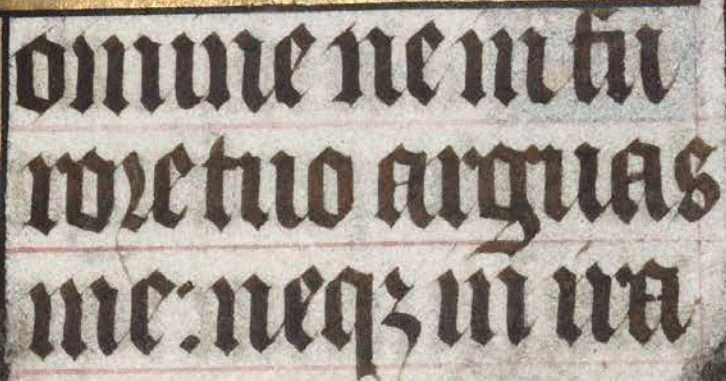 omine ne in fu
rore tuo arguas
me: neqz in ira